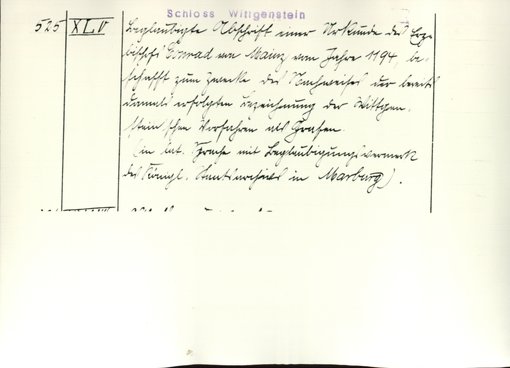 Schloss Wittgenstein
525 XLV Beglaubigte Abschrift einer Urkunde des Erz-
bischofs Conrad von Mainz vom Jahre 1194, be-
schafft zum Zwecke des Nachweises der bereits
damals erfolgten Bezeichnung der Wittgen-
stein'schen Vorfahren als Grafen.
(in lat. Sprache mit Beglaubigungsvermerk
des Königl. Staatsarchivs in Marburg).